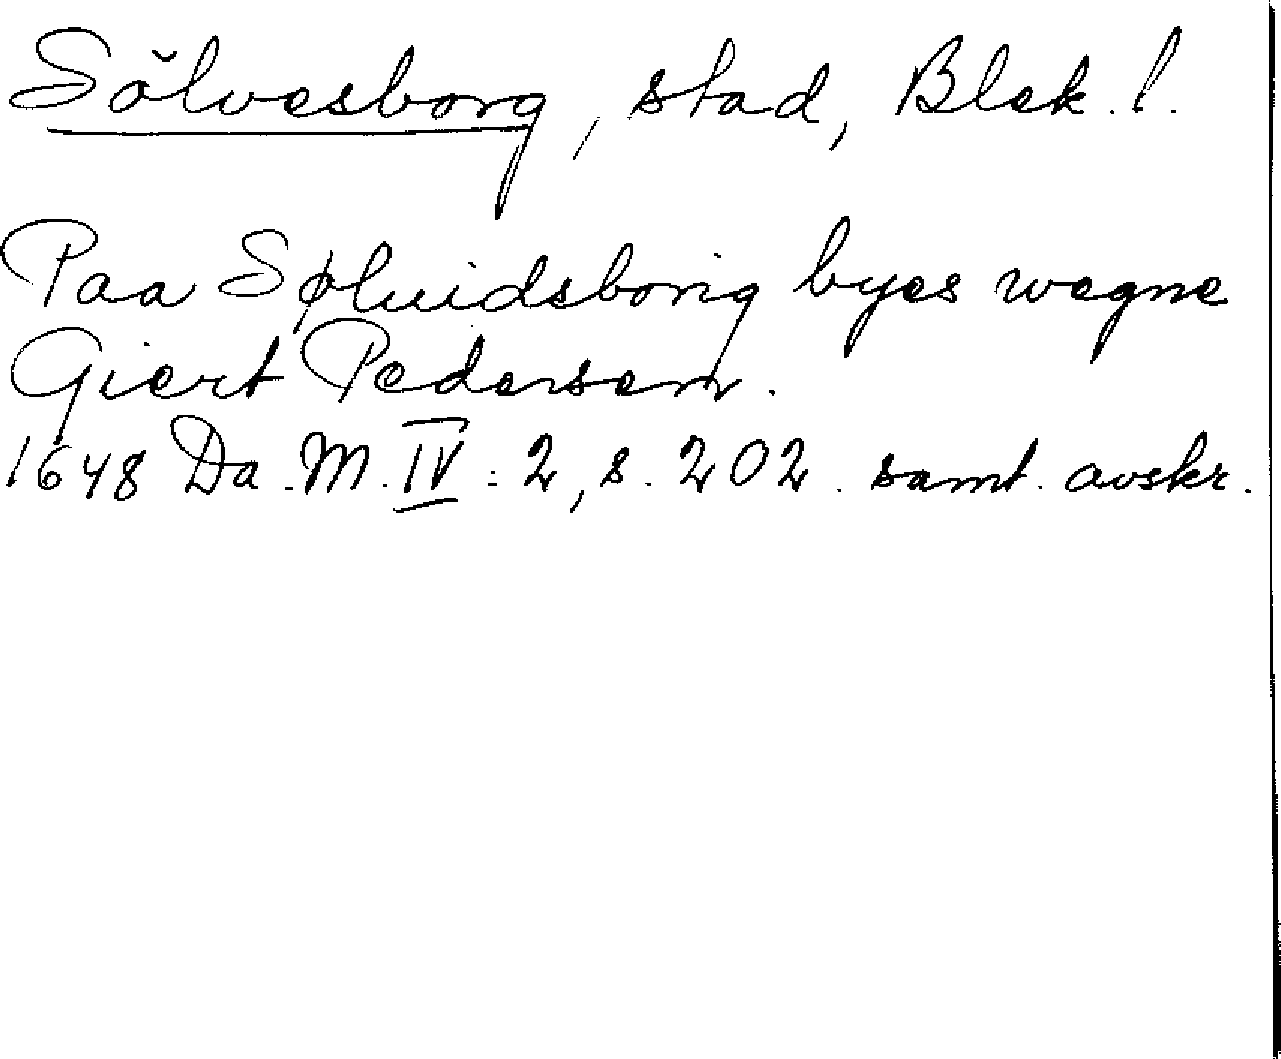 Sölvesborg, stad, Blek. l.
Paa Søluidsborig byes wegne
Giert Pedersenn.
1648 Da. M. IV: 2, s. 202. samt. avskr.